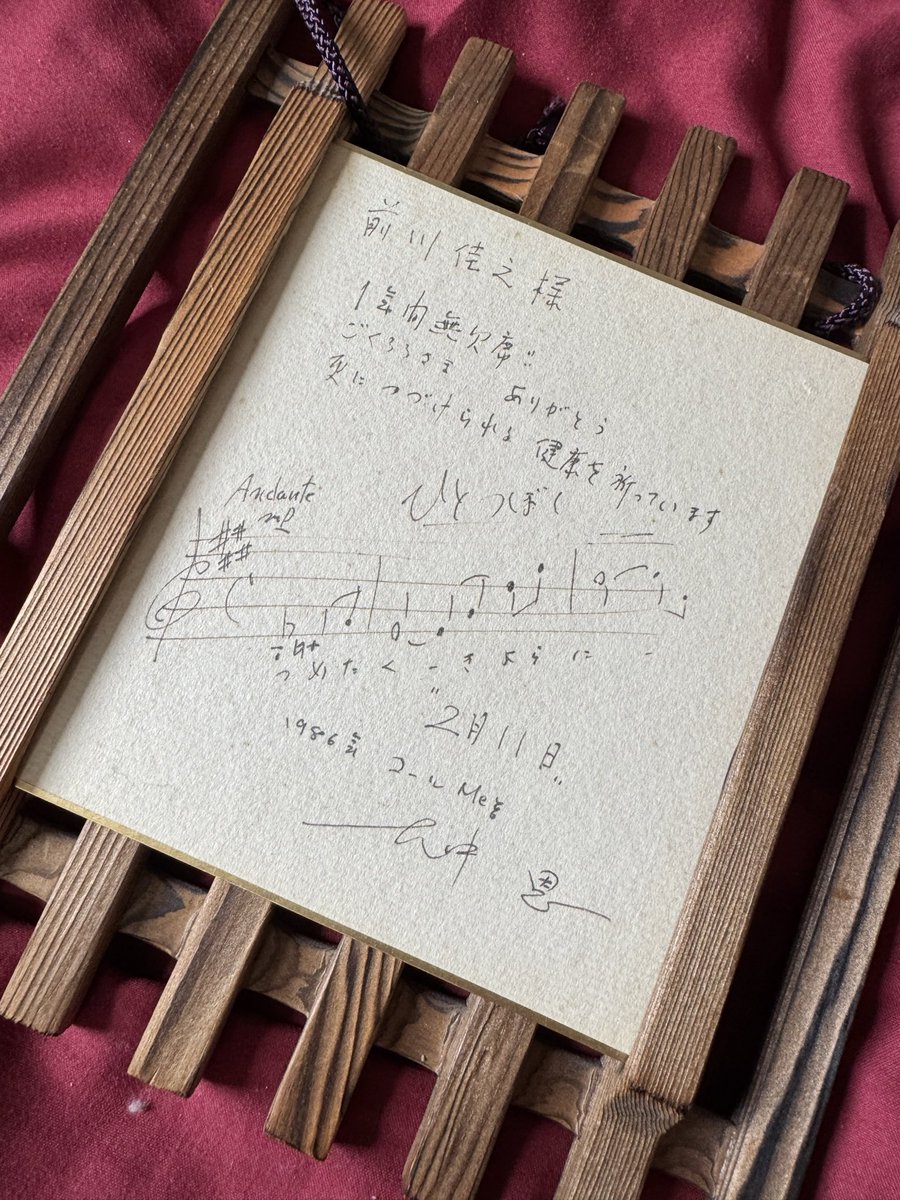 前川佳之様
1年間無欠席!!
ごくろうさま ありがとう
更につづけられる健康を祈っています
Andante
mp
ひとつぼく
つめたく - きよらに -
"2月11日"
1986年 コールMeg
中
恩